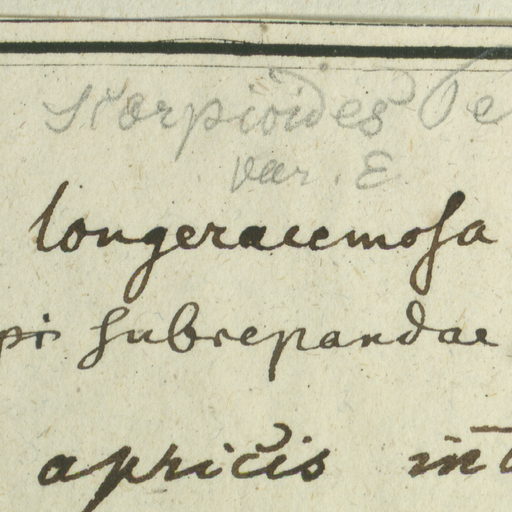 Scorpioides
var. E
longeracemosa
subrepandae
apricis